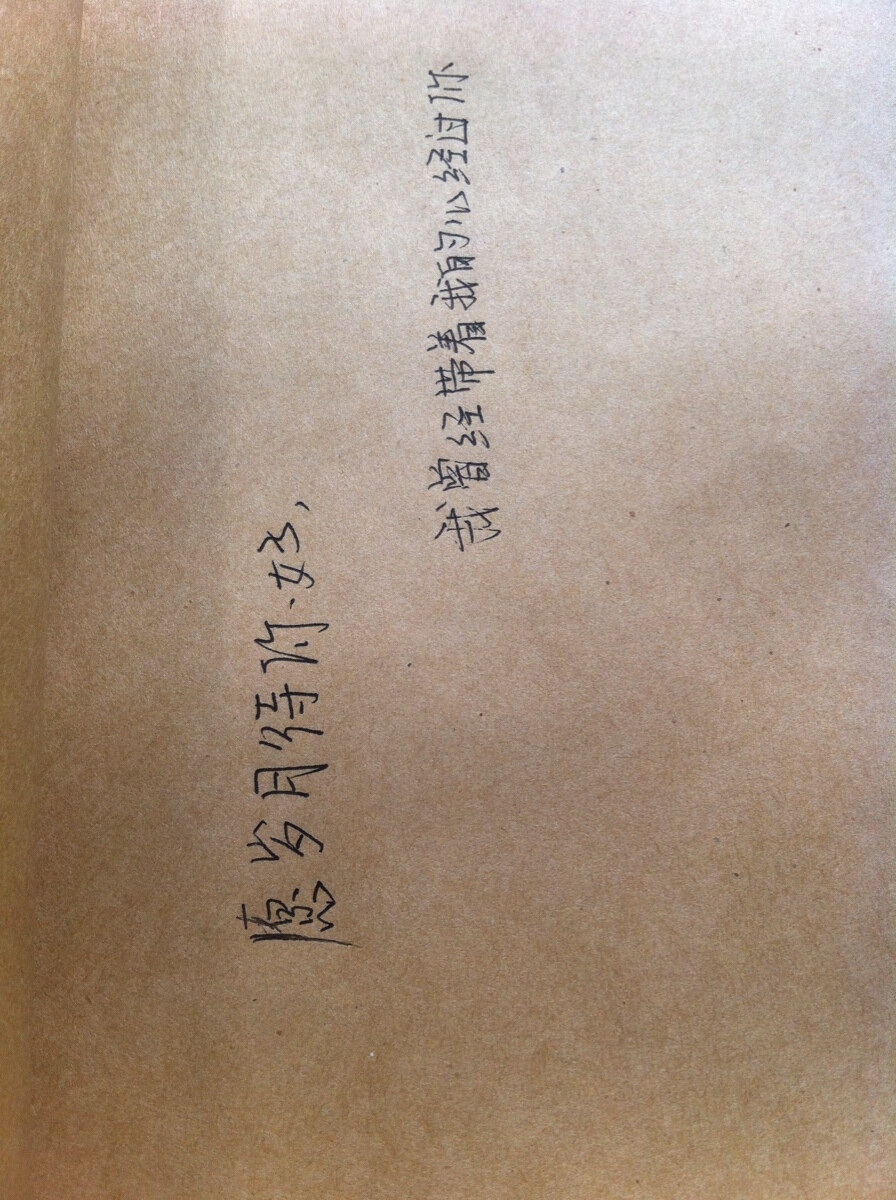 愿岁月待你好,
我曾经带着我的心经过你